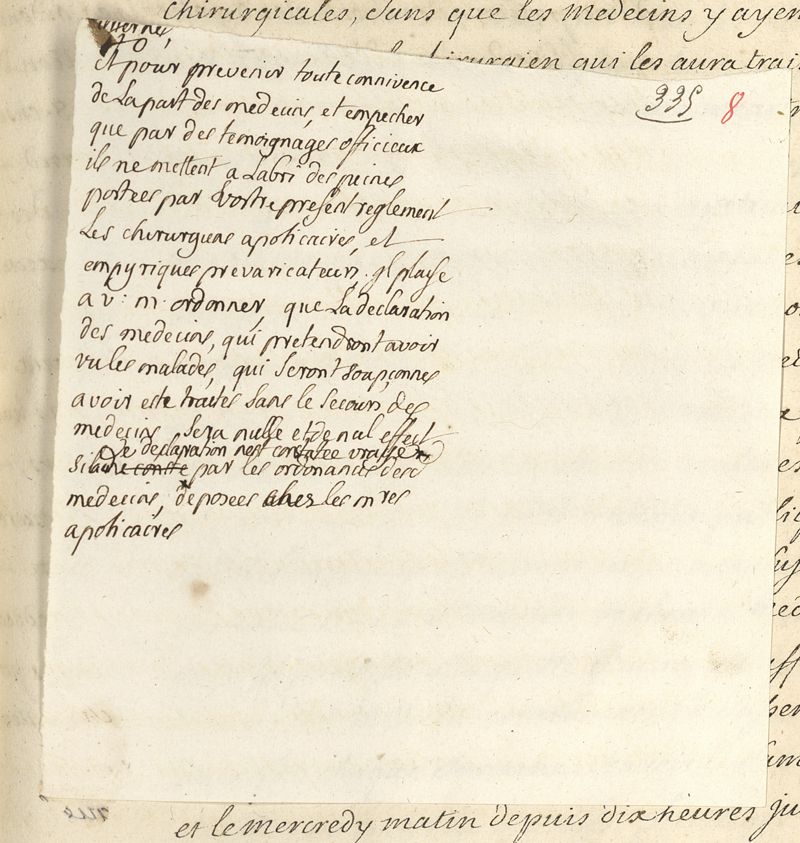 chirurgicales, sans que les medecins y ayen
chirurgien qui les aura trai
335 8
et pour prevenir toute connivence
de la part des medecins, et empecher
que par des temoignages officieux
ils ne mettent a labri des peines
portées par vostre present reglement
Les chirurgiens apoticaires, et
empyriques prevaricateurs, jl plaise
a v: m. ordonner, que La declaration
des medecins, qui pretendront avoir
vu les malades, qui seront soupçonnes
avoir esté traités sans le secours des
medecins, sera nulle et de nul effect
declaration n'est constatée vraÿe
si par les ordonances des
medecins, deposees chez les mres
apoticaires
et le mercredy matin depuis dix heures ju